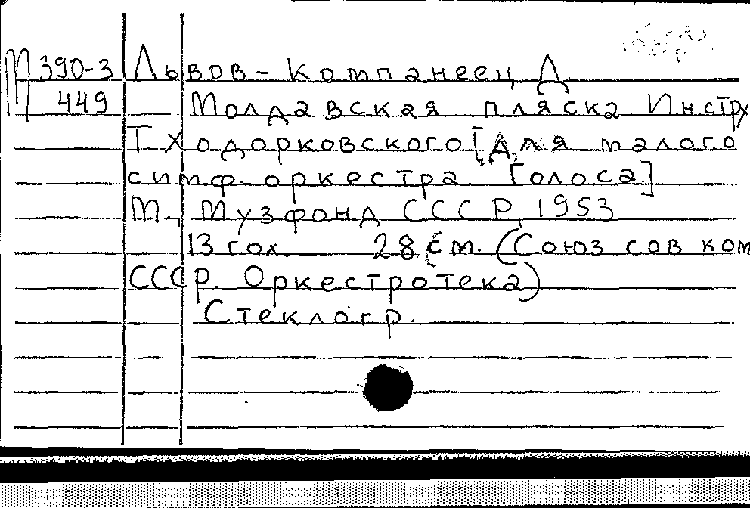 М 390-3 Львов-Компанеец Д
449 Молдавская пляска Инстр
Т. Ходорковского [Для малого
симф. оркестра [Голоса]
М., Музфонд СССР, 1953
13 гол. 28 см. (Союз сов ком
СССР. Оркестротека)
Стеклогр.